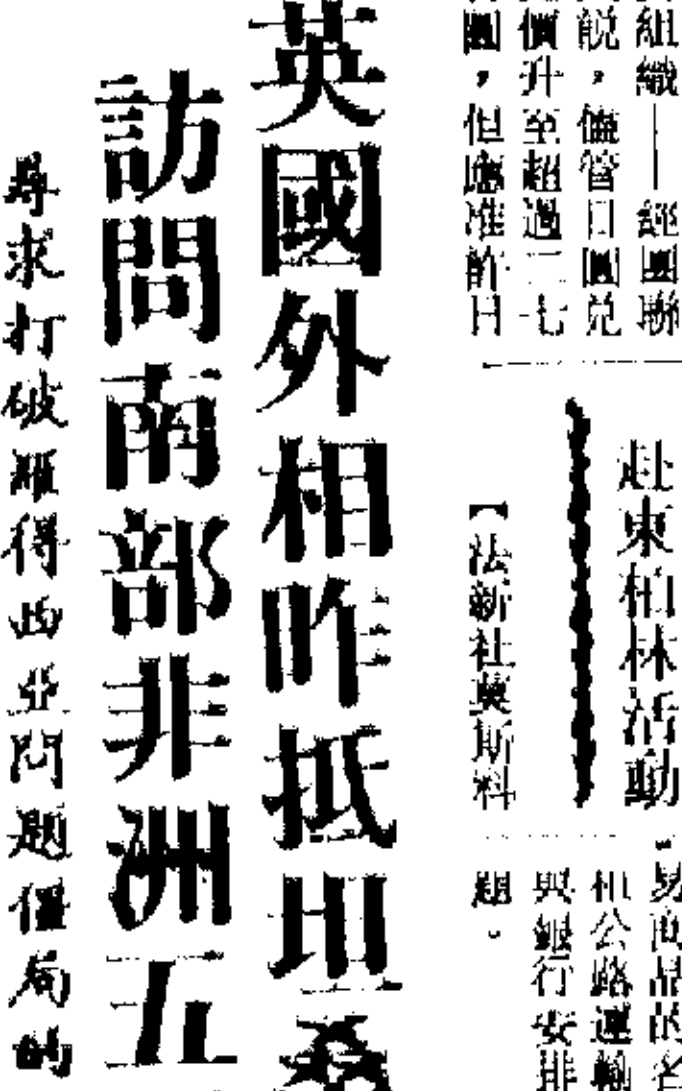 組織——經團聯
說，儘管日圓兌
價升至超過二七
圓，但應准許日
赴東柏林活動
【法新社莫斯科
易商品的名
和公路運輸
與銀行安排
題。
英國外相昨抵坦桑
訪問南部非洲五
尋求打破羅得西亞問題僵局的